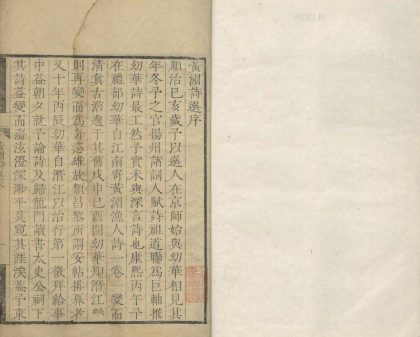 黃湄詩選序
順治己亥歲予以選人在京師始與幼華相見其
年冬予之官揚州諸詞人賦詩祖道聯為巨軸推
幼華詩最工然予實未與深言詩也康熙丙午予
在禮部幼華自江南寄黃湄漁人詩一卷一變而
清真古澹進于其舊戊申己酉間幼華知潛江
則再變而為奇恣雄放類昌黎所謂妥帖排奡者
又十年丙辰幼華自潛江以治行第一徵拜給事
中益朝夕就予論詩及歸龍門讀書太史公祠下
其詩益變而淪泫澄深渺乎莫窺其涯涘蓋予束